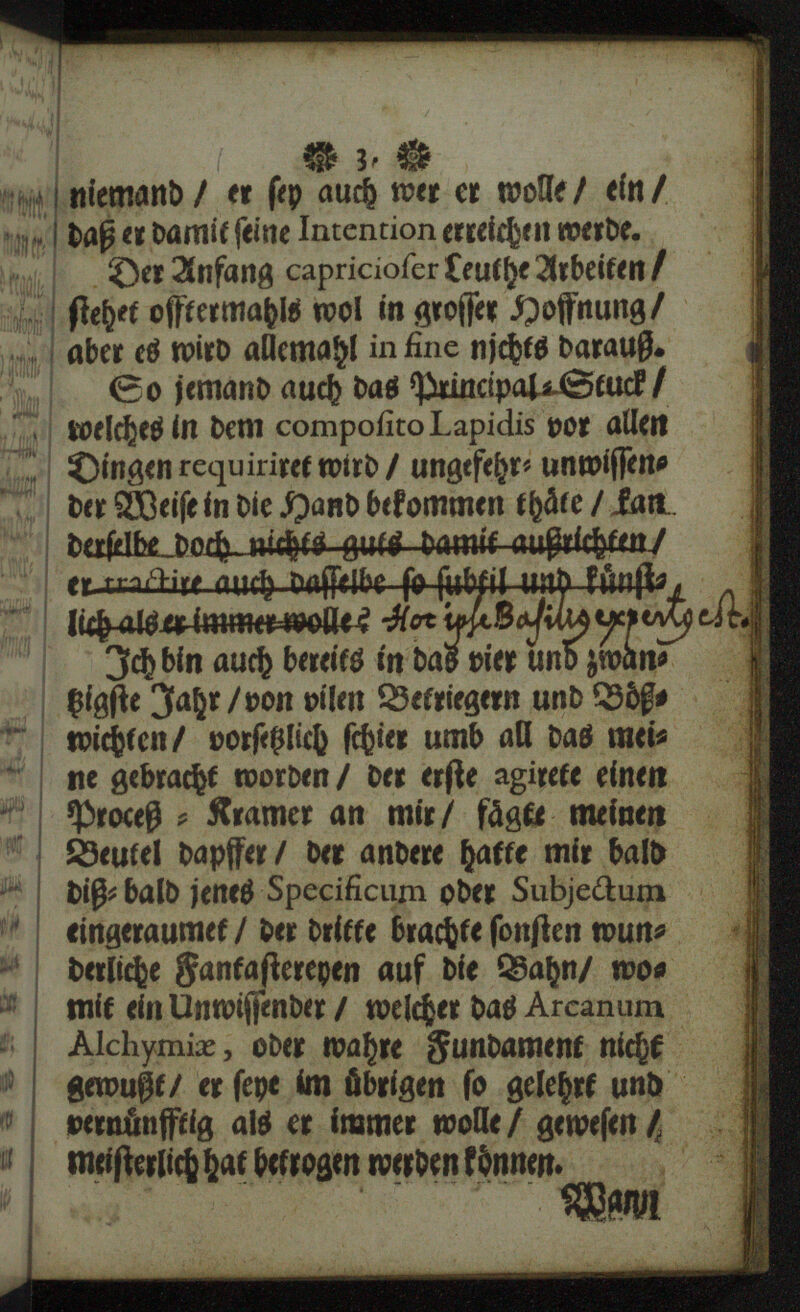 3.
niemand / er ſey auch wer er wolle / ein /
daß er damit ſeine Intention erreichen werde.
Der Anfang capricioſer Leuthe Arbeiten /
ſtehet offtermahls wol in groſſer Hoffnung /
aber es wird allemahl in fine njchts darauß.
So jemand auch das Principal⸗Stuck /
welches in dem compoſito Lapidis vor allen
Dingen requiriret wird / ungefehr⸗ unwiſſen⸗
der Weiſe in die Hand bekommen thaͤte / kan
derſelbe doch nichts guts damit außrichten /
er tractire auch daſſelbe ſo ſubtil und kuͤnſt⸗
lich als er immer wolle? Hoc ipse Basilius expertus est.
Ich bin auch bereits in das vier und zwan⸗
tzigſte Jahr / von vilen Betriegern und Boͤß⸗
wichten / vorſetzlich ſchier umb all das mei⸗
ne gebracht worden / der erſte agirete einen
Proceß ⸗ Kramer an mir / faͤgte meinen
Beutel dapffer / der andere hatte mir bald
diß⸗ bald jenes Specificum oder Subjectum
eingeraumet / der dritte brachte ſonſten wun⸗
derliche Fantaſtereyen auf die Bahn / wo⸗
mit ein Unwiſſender / welcher das Arcanum
Alchymiæ, oder wahre Fundament nicht
gewußt / er ſeye im uͤbrigen ſo gelehrt und
vernuͤnfftig als er immer wolle / geweſen /
meiſterlich hat betrogen werden koͤnnen.
Wann